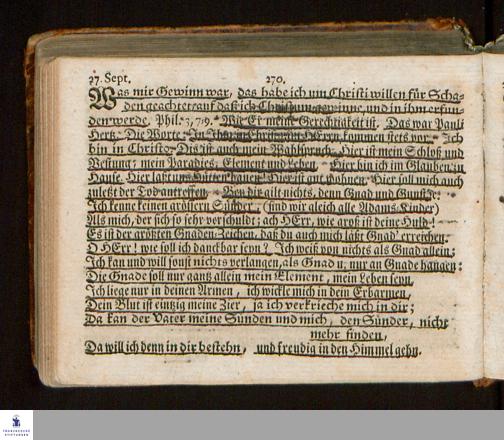 27. Sept. 270.
Was mir Gewinn war, das habe ich um Christi willen für Scha-
den geachtet: auf daß ich Christum gewinne, und in ihm erfun-
den werde. Phil. 3, 7.9. Mein Gerechtigkeit ist. Das war Pauli
Hertz. Die Worte: In HErrn kommen stets vor. Ich
bin in Christo. Dis ist auch mein Wahlspruch. Hier ist mein Schloß und
Vestung; mein Paradies; Element und Leben. Hier bin ich im Glauben zu
Hause. Hier laßt uns Hütten bauen! Hier ist gut wohnen. Hier soll mich auch
zuletzt der Tod antreffen. Bey dir gilt nichts, denn Gnad und Gunst ꝛc.
Ich kenne keinen grössern Sünder, (sind wir gleich alle Adams-Kinder)
Als mich, der sich so sehr verschuldt; ach HErr, wie groß ist deine Huld!
Es ist der grösten Gnaden-Zeichen, daß du auch mich läßt Gnad' erreichen.
O HErr! wie soll ich danckbar seyn? Ich weiß von nichts als Gnad allein;
Ich kan und will sonst nichts verlangen, als Gnad u. nur an Gnade hangen:
Die Gnade soll nur gantz allein mein Element, mein Leben seyn.
Ich liege nur in deinen Armen, ich wickle mich in dein Erbarmen,
Dein Blut ist eintzig meine Zier, ja ich verkrieche mich in dir;
Da kan der Vater meine Sünden und mich, den Sünder, nicht
mehr finden,
Da will ich denn in dir bestehn, und freudig in den Himmel gehn.
FRANCKESCHE
STIFTUNGEN